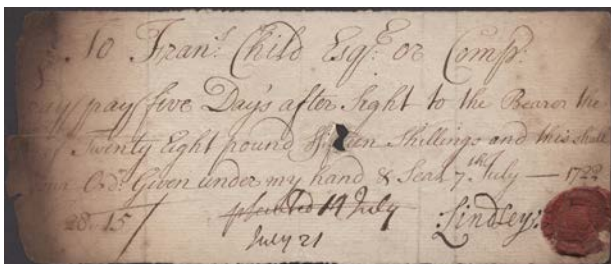 To Fran.s Child Esq.r or Comp.
pay five Day's after Sight to the Bearer the
Twenty Eight pound Fifteen Shillings and this shall
Ord.r Given under my hand & Seal 7th July — 1722
28 - 15
19 July
July 21
Lindley